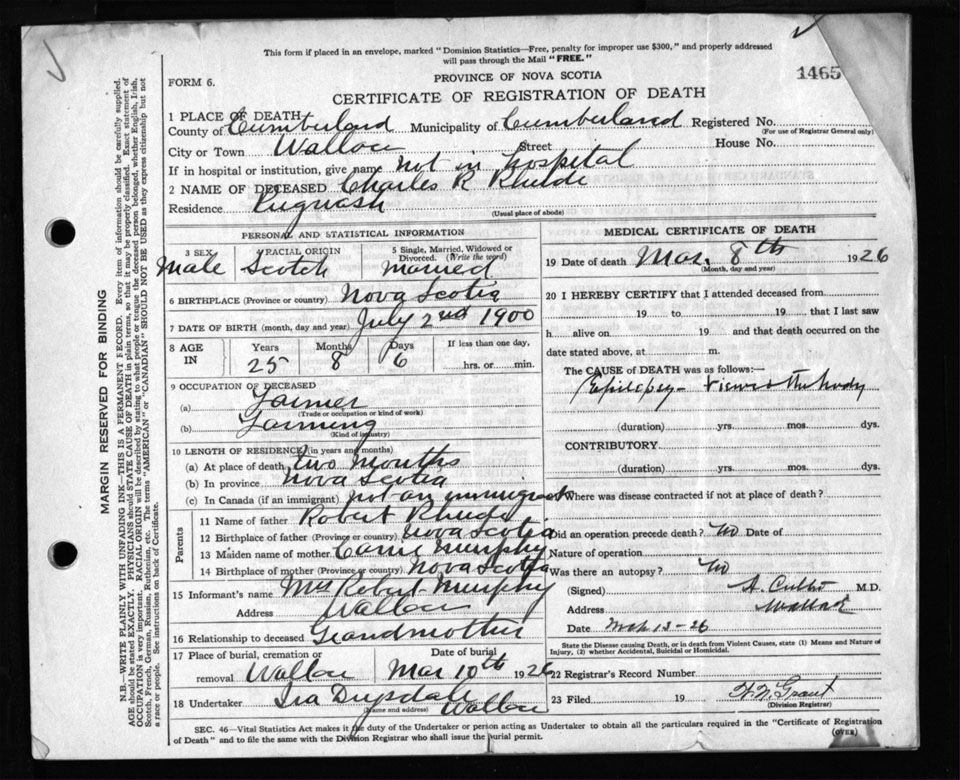 This form if placed in an envelope, marked "Dominion Statistics—Free, penalty for improper use $300," and properly addressed
will pass through the Mail "FREE."
FORM 6.
PROVINCE OF NOVA SCOTIA
1465
CERTIFICATE OF REGISTRATION OF DEATH
1 PLACE OF DEATH
County of Cumberland Municipality of Cumberland Registered No.
(For use of Registrar General only)
City or Town Wallace Street House No.
If in hospital or institution, give name not in hospital
2 NAME OF DECEASED Charles R Rhude
Residence Pugwash
(Usual place of abode)
PERSONAL AND STATISTICAL INFORMATION
3 SEX RACIAL ORIGIN 5 Single, Married, Widowed or
Divorced. (Write the word)
Male Scotch Married
6 BIRTHPLACE (Province or country) Nova Scotia
7 DATE OF BIRTH (month, day and year) July 2nd 1900
8 AGE IN Years Months Days If less than one day,
25 8 6 hrs. or min.
9 OCCUPATION OF DECEASED
(a) Farmer
(Trade or occupation or kind of work)
(b) Farming
(Kind of industry)
10 LENGTH OF RESIDENCE (in years and months)
(a) At place of death two months
(b) In province Nova Scotia
(c) In Canada (if an immigrant) not an immigrant
Parents
11 Name of father Robert Rhude
12 Birthplace of father (Province or country) Nova Scotia
13 Maiden name of mother Carrie Murphy
14 Birthplace of mother (Province or country) Nova Scotia
15 Informant's name Mrs Robert Murphy
Address Wallace
16 Relationship to deceased Grandmother
17 Place of burial, cremation or removal Wallace
Date of burial Mar 10th 1926
18 Undertaker Ira Drysdale Wallace
(Name and address)
MEDICAL CERTIFICATE OF DEATH
19 Date of death Mar. 8th 1926
(Month, day and year)
20 I HEREBY CERTIFY that I attended deceased from
19 to 19 that I last saw
h alive on 19 and that death occurred on
date stated above, at m.
The CAUSE OF DEATH was as follows:—
Epilepsy - viewed the body
(duration) yrs. mos. dys.
CONTRIBUTORY
(duration) yrs. mos. dys.
Where was disease contracted if not at place of death?
Did an operation precede death? no Date of
Nature of operation
Was there an autopsy? no
(Signed) A. M.D.
Address Wallace
Date Mch 13-26
State the Disease causing Death, or in death from Violent Causes, state (1) Means and Nature of
Injury, (2) whether Accidental, Suicidal or Homicidal.
22 Registrar's Record Number
23 Filed 19 Grant
(Division Registrar)
SEC. 46—Vital Statistics Act makes it the duty of the Undertaker or person acting as Undertaker to obtain all the particulars required in the "Certificate of Registration
of Death" and to file the same with the Division Registrar who shall issue the burial permit.
(OVER)
MARGIN RESERVED FOR BINDING
N.B.—WRITE PLAINLY WITH UNFADING INK—THIS IS A PERMANENT RECORD. Every item of information should be carefully supplied.
AGE should be stated EXACTLY. PHYSICIANS should STATE CAUSE OF DEATH in plain terms, so that it may be properly classified. Exact statement of
OCCUPATION is very important. RACIAL ORIGIN will be described by stating to what people or tongue the deceased person belonged, whether English, Irish,
Scotch, French, German, Russian, Ruthenian, etc. The terms "AMERICAN" or "CANADIAN" SHOULD NOT BE USED as they express citizenship but not
a race or people. See instructions on back of Certificate.